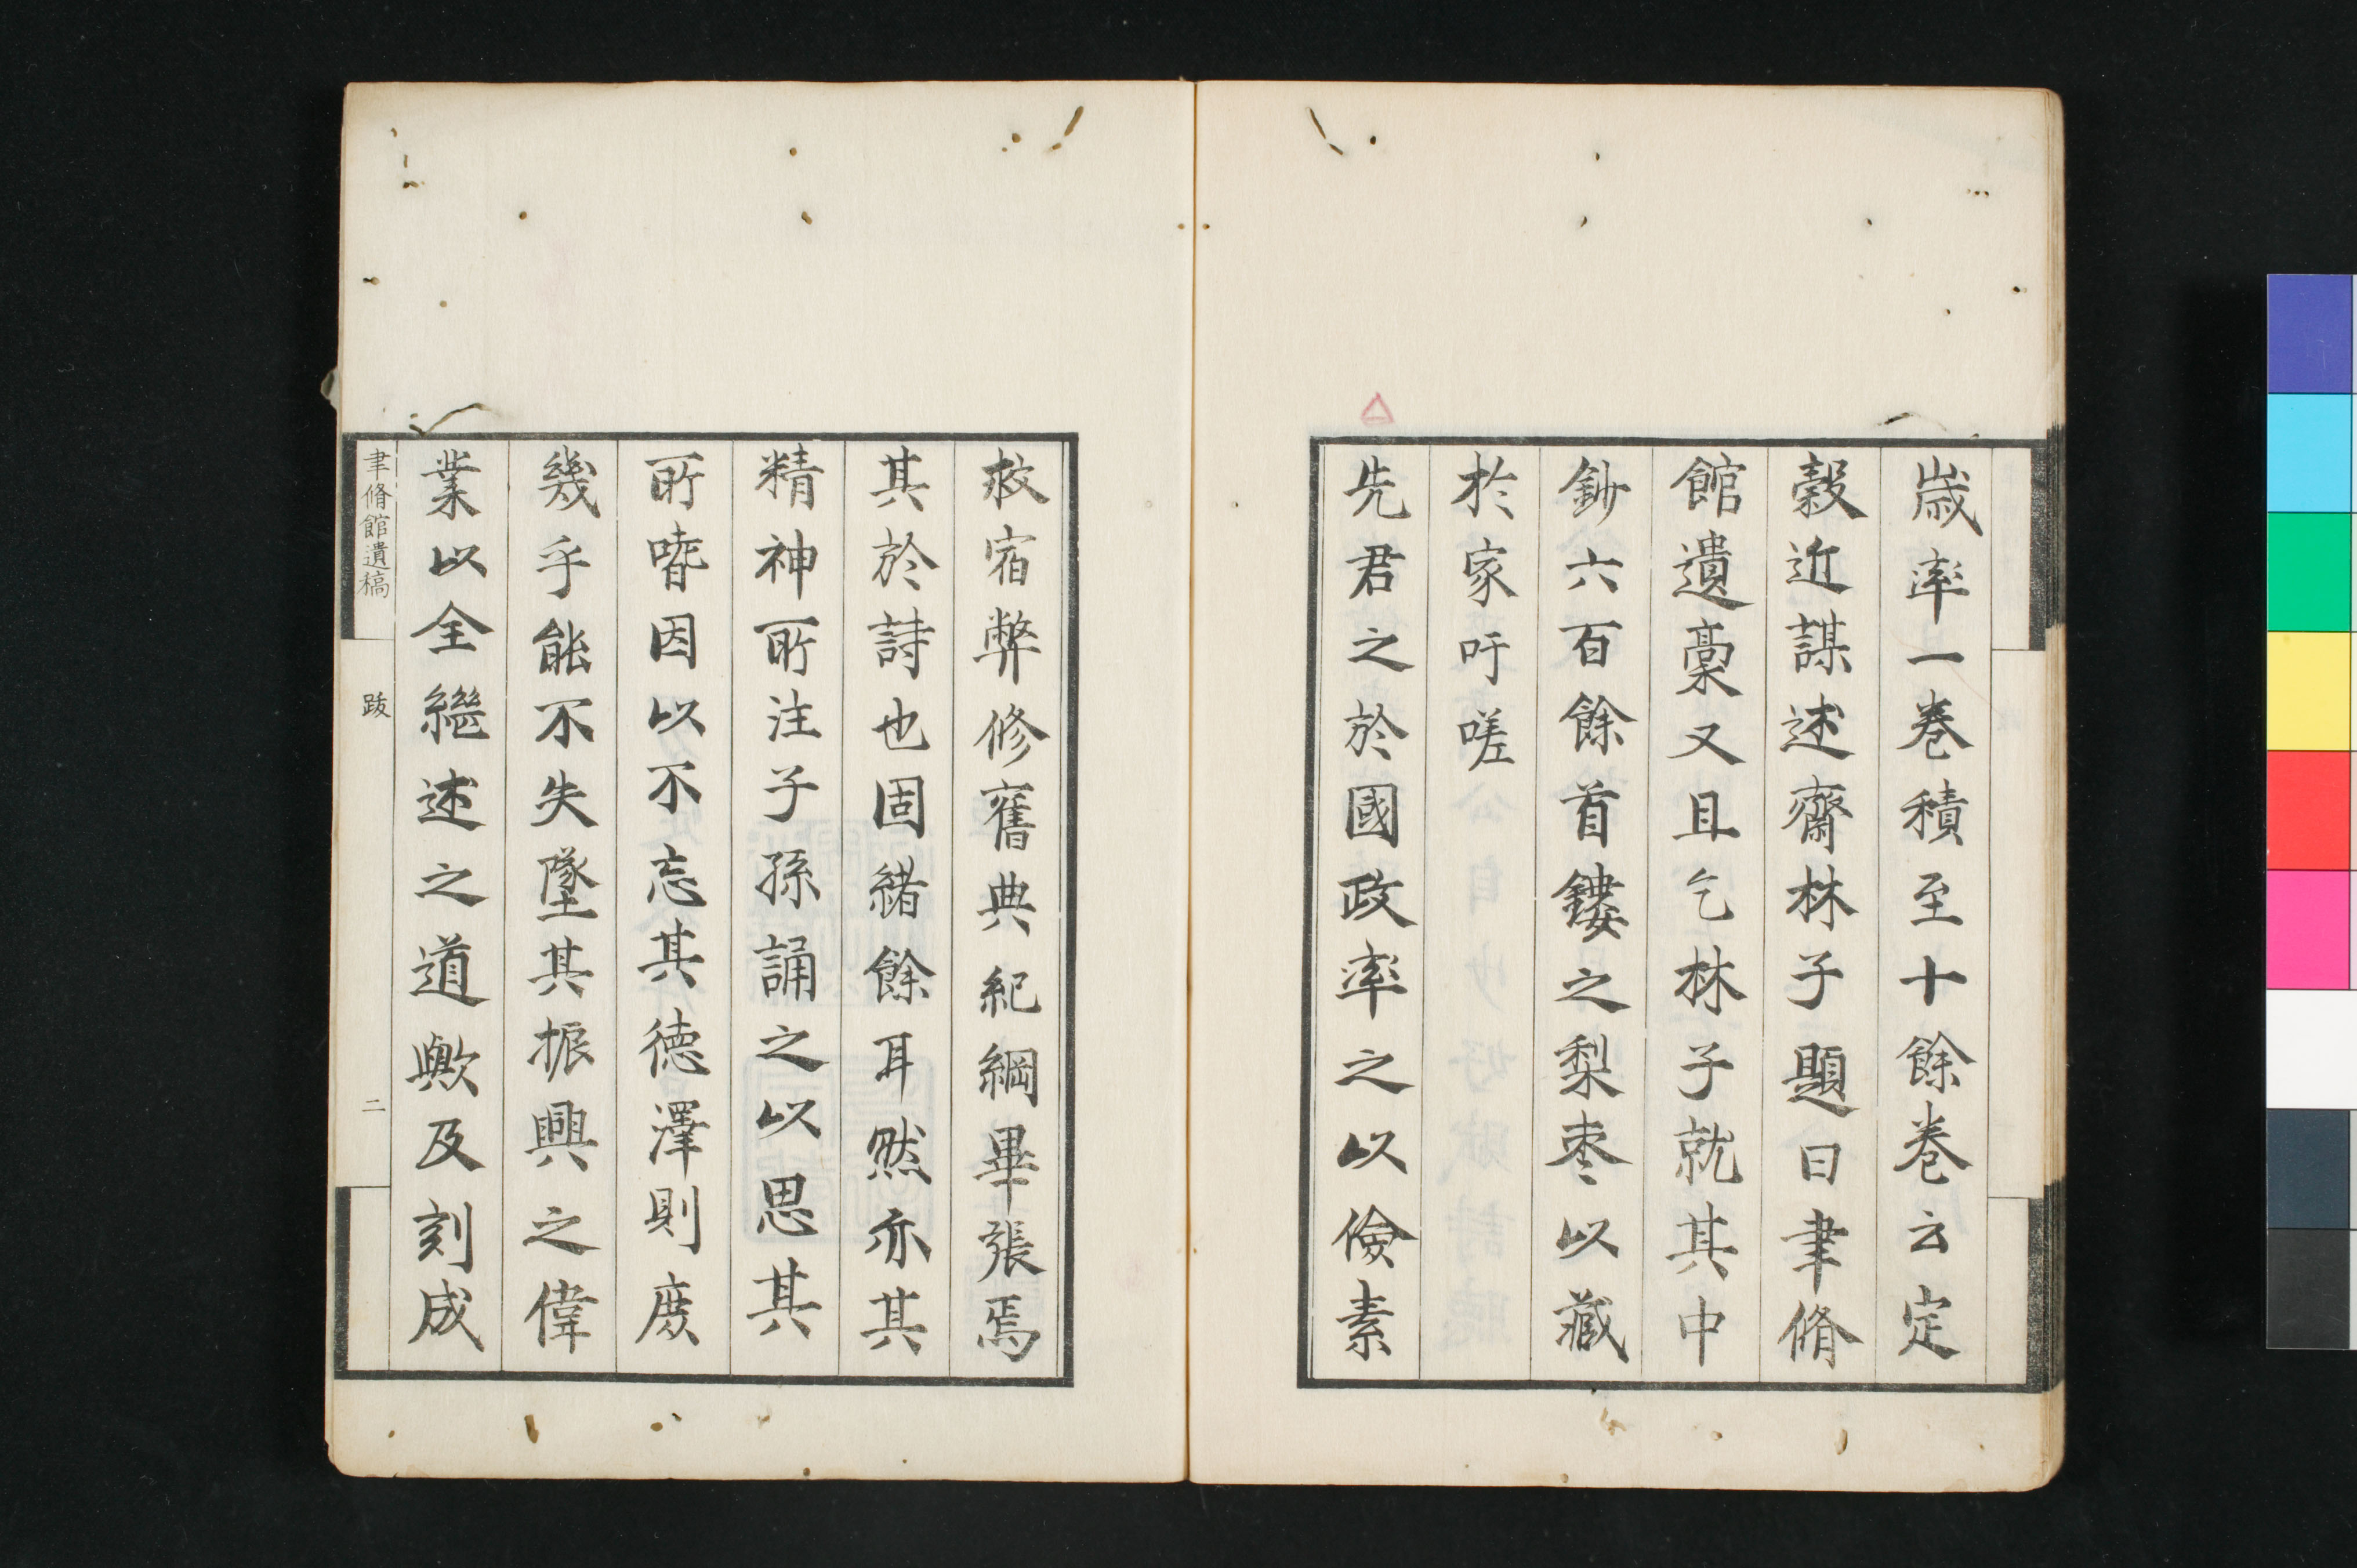 歲率一卷積至十餘卷云定
穀近謀述齋林子題曰聿脩
館遺稾又且乞林子就其中
鈔六百餘首鏤之梨枣以藏
於家吁嗟
先君之於國政率之以儉素
救宿弊修舊典紀綱畢張焉
其於詩也固緒餘耳然亦其
精神所注子孫誦之以思其
所嗜因以不忘其德澤則庶
幾乎能不失墜其振興之偉
業以全繼述之道歟及刻成
聿脩館遺稿
跋
二